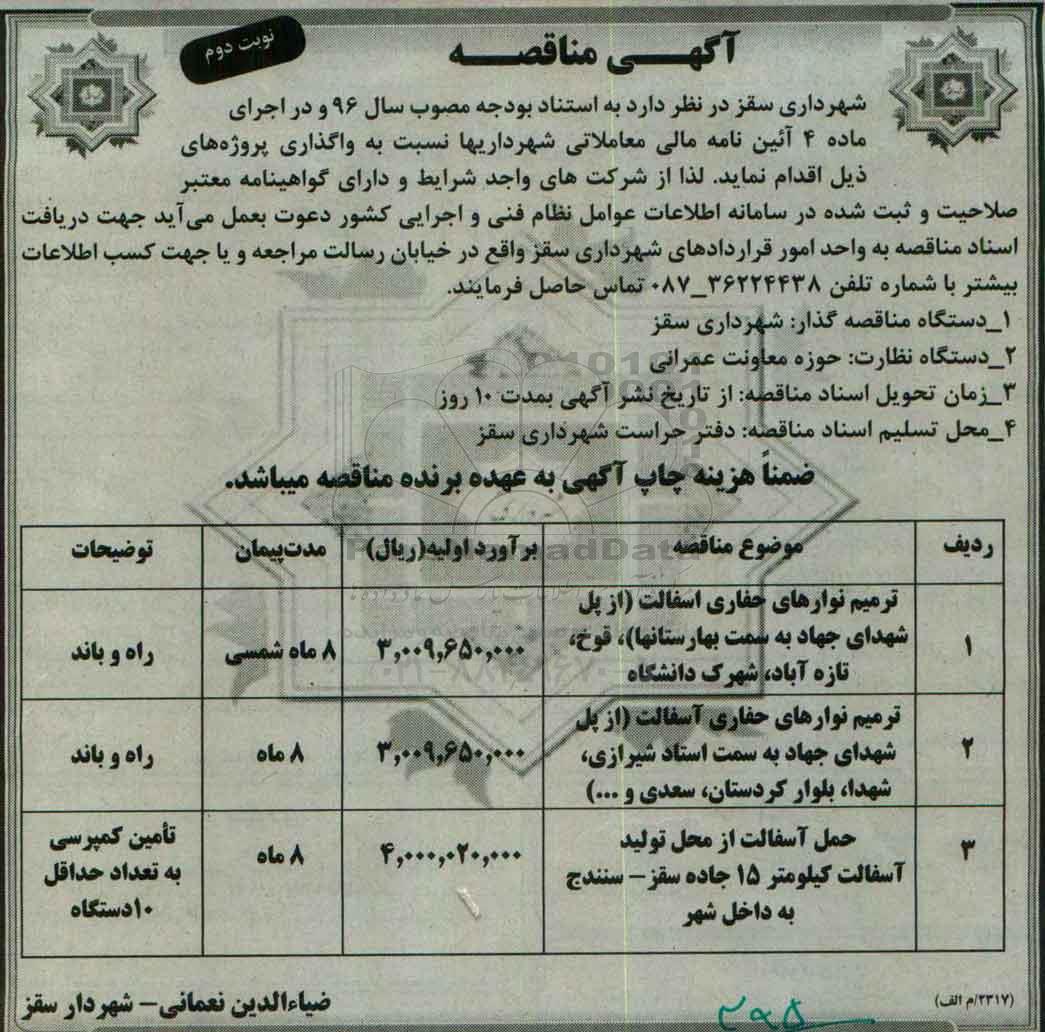 نوبت دوم
آگهـی مناقصـه
شهرداری سقز در نظر دارد به استناد بودجه مصوب سال ۹۶ و در اجرای
ماده ۴ آئین نامه مالی معاملاتی شهرداریها نسبت به واگذاری پروژه‌های
ذیل اقدام نماید. لذا از شرکت های واجد شرایط و دارای گواهینامه معتبر
صلاحیت و ثبت شده در سامانه اطلاعات عوامل نظام فنی و اجرایی کشور دعوت بعمل می‌آید جهت دریافت
اسناد مناقصه به واحد امور قراردادهای شهرداری سقز واقع در خیابان رسالت مراجعه و یا جهت کسب اطلاعات
بیشتر با شماره تلفن ۳۶۲۲۴۴۳۸_۰۸۷ تماس حاصل فرمایند.
۱_دستگاه مناقصه گذار: شهرداری سقز
۲_دستگاه نظارت: حوزه معاونت عمرانی
۳_زمان تحویل اسناد مناقصه: از تاریخ نشر آگهی بمدت ۱۰ روز
۴_محل تسلیم اسناد مناقصه: دفتر حراست شهرداری سقز
ضمناً هزینه چاپ آگهی به عهده برنده مناقصه میباشد.
ردیف موضوع مناقصه برآورد اولیه(ریال) مدت‌پیمان توضیحات
ترمیم نوارهای حفاری آسفالت (از پل
۱ شهدای جهاد به سمت بهارستانها)، قوخ، ۳,۰۰۹,۶۵۰,۰۰۰ ۸ ماه شمسی راه و باند
تازه آباد، شهرک دانشگاه
ترمیم نوارهای حفاری آسفالت (از پل
۲ شهدای جهاد به سمت استاد شیرازی، ۳,۰۰۹,۶۵۰,۰۰۰ ۸ ماه راه و باند
شهدا، بلوار کردستان، سعدی و ...)
حمل آسفالت از محل تولید تأمین کمپرسی
۳ آسفالت کیلومتر ۱۵ جاده سقز– سنندج ۴,۰۰۰,۰۲۰,۰۰۰ ۸ ماه به تعداد حداقل
به داخل شهر ۱۰دستگاه
ضیاءالدین نعمانی– شهردار سقز
(۲۳۱۷/م الف)
۲۹۵